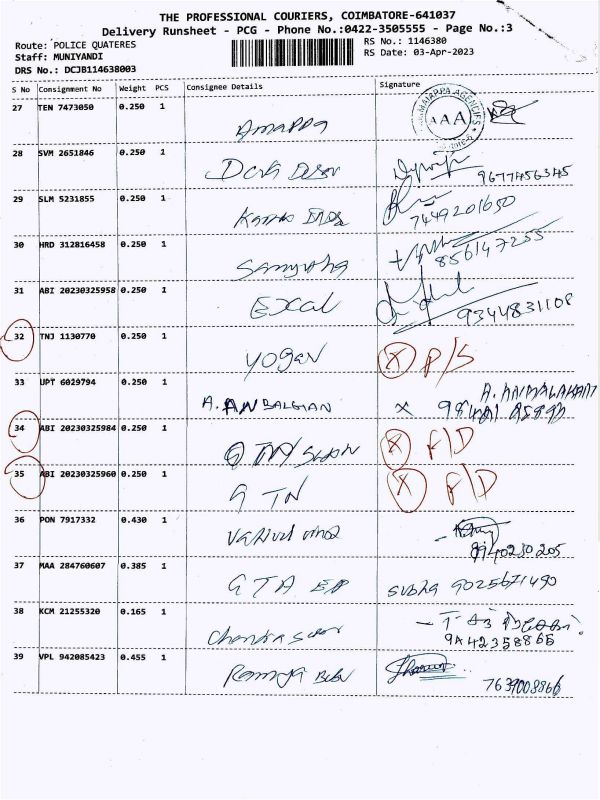 THE PROFESSIONAL COURIERS, COIMBATORE-641037
Delivery Runsheet - PCG - Phone No.:0422-3505555 - Page No.:3
Route: POLICE QUATERES
RS No.: 1146380
Staff: MUNIYANDI
RS Date: 03-Apr-2023
DRS No.: DCJB114638003
S No Consignment No Weight PCS Consignee Details Signature
27 TEN 7473050 0.250 1
AAA
28 SVM 2651846 0.250 1
9677456345
29 SLM 5231855 0.250 1
7449201650
30 HRD 312816458 0.250 1
856147255
31 ABI 20230325958 0.250 1
Excal 9344831108
32 TNJ 1130770 0.250 1
Yogan X P/S
33 UPT 6029794 0.250 1
A. ANBALGIAN X
34 ABI 20230325984 0.250 1
X F/D
35 ABI 20230325960 0.250 1
G TN X F/D
36 PON 7917332 0.430 1
9940230205
37 MAA 284760607 0.385 1
GTA EP Subha 9025671490
38 KCM 21255320 0.165 1
9442358865
39 VPL 942085423 0.455 1
7639008866